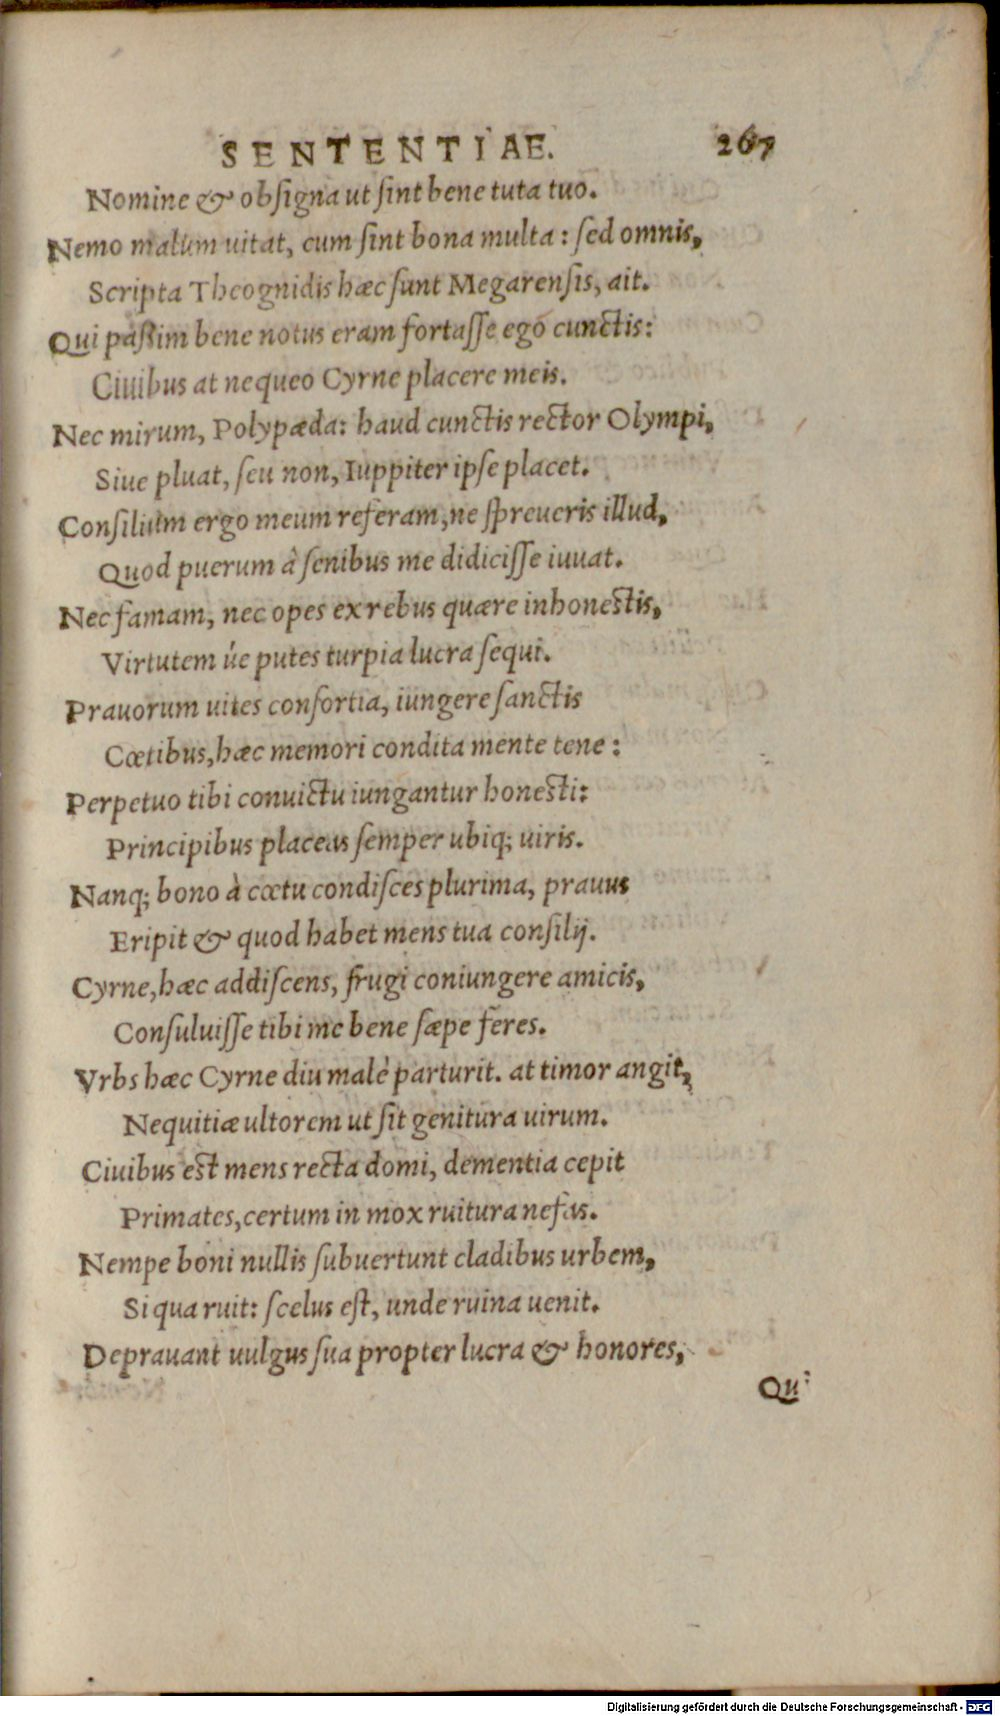 SENTENTIAE. 267
Nomine & obſigna ut ſint bene tuta tuo.
Nemo malum uitat, cum ſint bona multa: ſed omnis,
Scripta Theognidis hæc ſunt Megarenſis, ait.
Qui paſſim bene notus eram fortaſſe ego cunctis:
Ciuibus at nequeo Cyrne placere meis.
Nec mirum, Polypæda: haud cunctis rector Olympi,
Siue pluat, ſeu non, Iuppiter ipſe placet.
Conſilium ergo meum referam, ne ſpreueris illud,
Quod puerum à ſenibus me didiciſſe iuuat.
Nec famam, nec opes ex rebus quære inhoneſtis,
Virtutem úe putes turpia lucra ſequi.
Prauorum uites conſortia, iungere ſanctis
Cœtibus, hæc memori condita mente tene:
Perpetuo tibi conuictu iungantur honeſti:
Principibus placeas ſemper ubiq; uiris.
Nanq; bono à cœtu condiſces plurima, prauus
Eripit & quod habet mens tua conſilij.
Cyrne, hæc addiſcens, frugi coniungere amicis,
Conſuluiſſe tibi me bene ſæpe feres.
Vrbs hæc Cyrne diu malè parturit. at timor angit,
Nequitiæ ultorem ut ſit genitura uirum.
Ciuibus eſt mens recta domi, dementia cepit
Primates, certum in mox ruitura nefas.
Nempe boni nullis ſubuertunt cladibus urbem,
Si qua ruit: ſcelus eſt, unde ruina uenit.
Deprauant uulgus ſua propter lucra & honores,
Qui
Digitalisierung gefördert durch die Deutsche Forschungsgemeinschaft - DFG